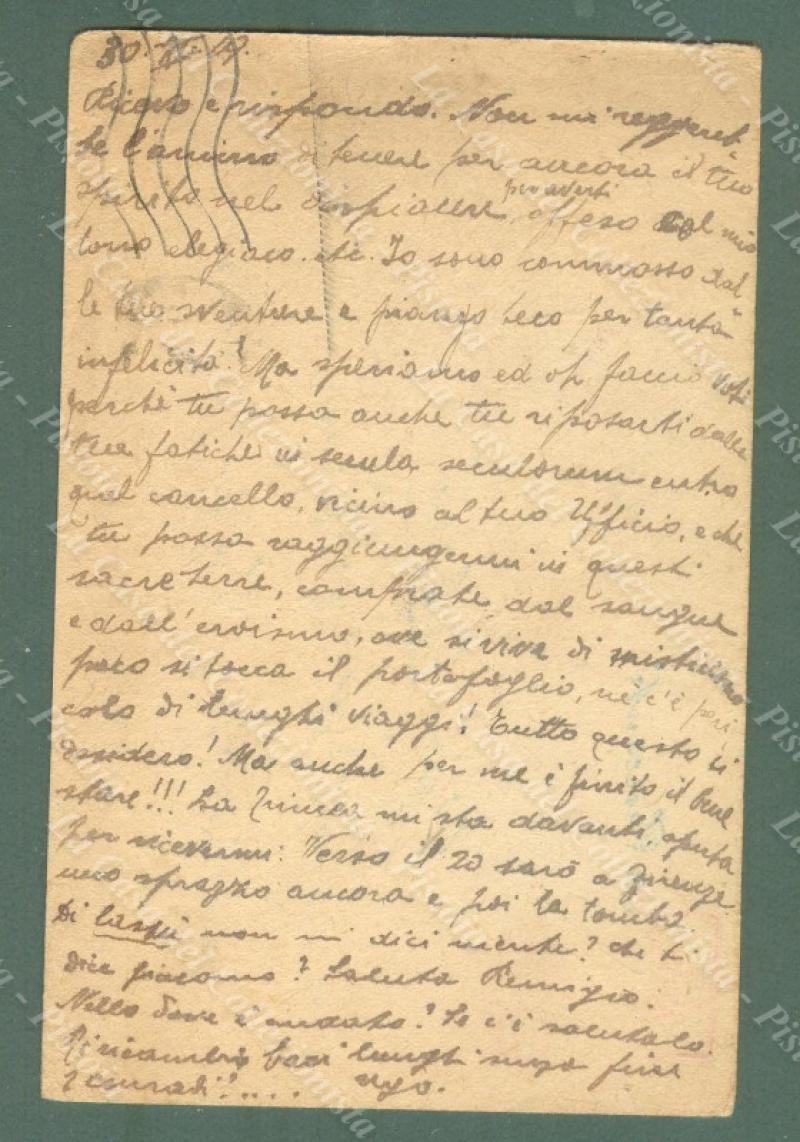 Ricevo e rispondo. Non mi reggereb-
be l'animo di tenere per ancora il tuo
spirito nel dispiacere, per averti offeso col mio
tono elegiaco. etc. Io sono commosso dal-
le tue sventure e piango teco per tanta
infelicità! Ma speriamo ed oh faccio voti
perchè tu possa anche tu riposarti dalle
tue fatiche in secula seculorum entro
quel cancello, vicino al tuo Ufficio, e che
tu possa raggiungermi in questi
sacre terre, comprate dal sangue
e dall'eroismo, ove si vive di misticismo
poco si tocca il portafoglio, nè c'è peri
colo di lunghi viaggi! Tutto questo ti
desidero! Ma anche per me è finito il bene
stare!!! La mi sta davanti, aperta
per ricevermi: Verso il 20 sarò a Firenze
uno sprazzo ancora e poi la tomba.
Di lassù non mi dici niente? che ti
dice Giacomo? Saluta Remigio.
Nello dove è andato? Se c'è salutalo.
Ti ricambio baci lunghi senza fine
Ugo.
La Casa del Collezionista - Pistoia